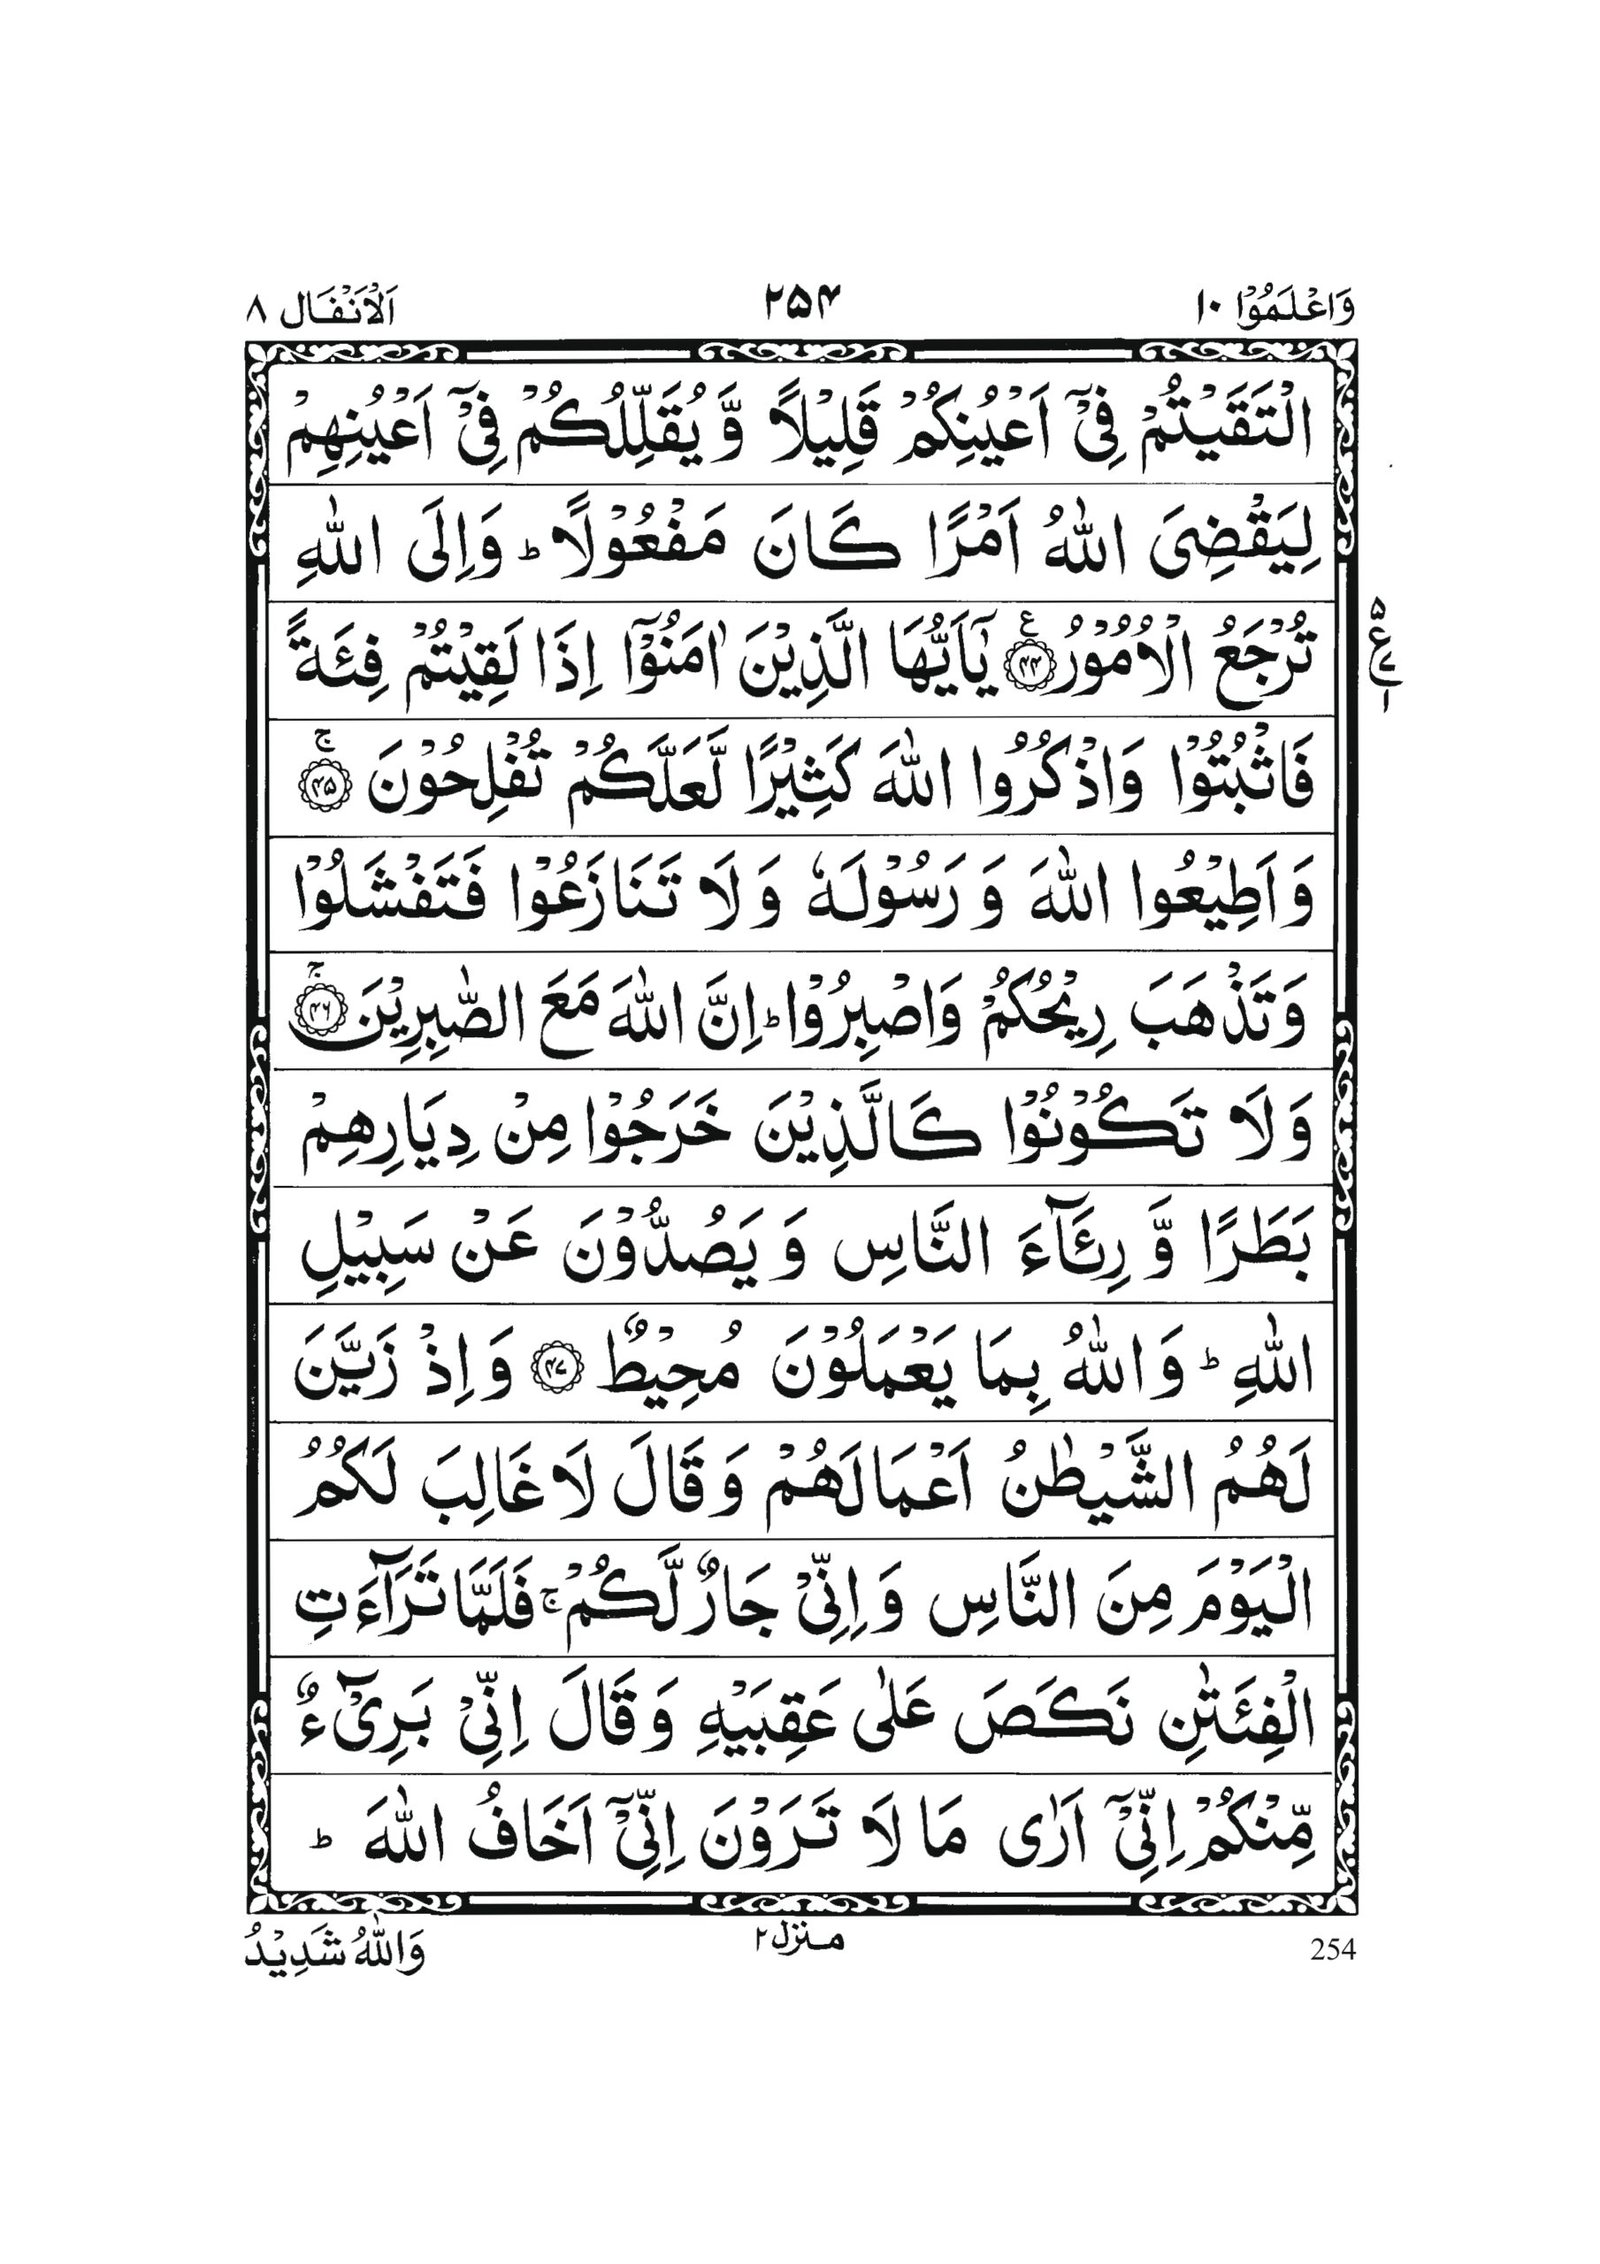 وَاعْلَمُوْۤا ١٠ ٢٥٤ اَلْاَنْفَال ٨
الْتَقَيْتُمْ فِيْۤ اَعْيُنِكُمْ قَلِيْلًا وَّ يُقَلِّلُكُمْ فِيْۤ اَعْيُنِهِمْ
لِيَقْضِيَ اللّٰهُ اَمْرًا كَانَ مَفْعُوْلًا ؕ وَاِلَى اللّٰهِ
تُرْجَعُ الْاُمُوْرُ ۧ ﴿۴۴﴾ يٰۤاَيُّهَا الَّذِيْنَ اٰمَنُوْۤا اِذَا لَقِيْتُمْ فِئَةً
فَاثْبُتُوْا وَاذْكُرُوا اللّٰهَ كَثِيْرًا لَّعَلَّكُمْ تُفْلِحُوْنَ ۚ ﴿۴۵﴾
وَاَطِيْعُوا اللّٰهَ وَ رَسُوْلَهٗ وَ لَا تَنَازَعُوْا فَتَفْشَلُوْا
وَتَذْهَبَ رِيْحُكُمْ وَاصْبِرُوْا ؕ اِنَّ اللّٰهَ مَعَ الصّٰبِرِيْنَ ۚ ﴿۴۶﴾
وَ لَا تَكُوْنُوْا كَالَّذِيْنَ خَرَجُوْا مِنْ دِيَارِهِمْ
بَطَرًا وَّ رِئَآءَ النَّاسِ وَ يَصُدُّوْنَ عَنْ سَبِيْلِ
اللّٰهِ ؕ وَاللّٰهُ بِمَا يَعْمَلُوْنَ مُحِيْطٌ ﴿۴۷﴾ وَ اِذْ زَيَّنَ
لَهُمُ الشَّيْطٰنُ اَعْمَالَهُمْ وَ قَالَ لَا غَالِبَ لَكُمُ
الْيَوْمَ مِنَ النَّاسِ وَ اِنِّيْ جَارٌ لَّكُمْ ۚ فَلَمَّا تَرَآءَتِ
الْفِئَتٰنِ نَكَصَ عَلٰى عَقِبَيْهِ وَ قَالَ اِنِّيْ بَرِيْٓءٌ
مِّنْكُمْ اِنِّيْۤ اَرٰى مَا لَا تَرَوْنَ اِنِّيْۤ اَخَافُ اللّٰهَ ؕ
254 منزل ٢ وَاللّٰهُ شَدِيْدُ